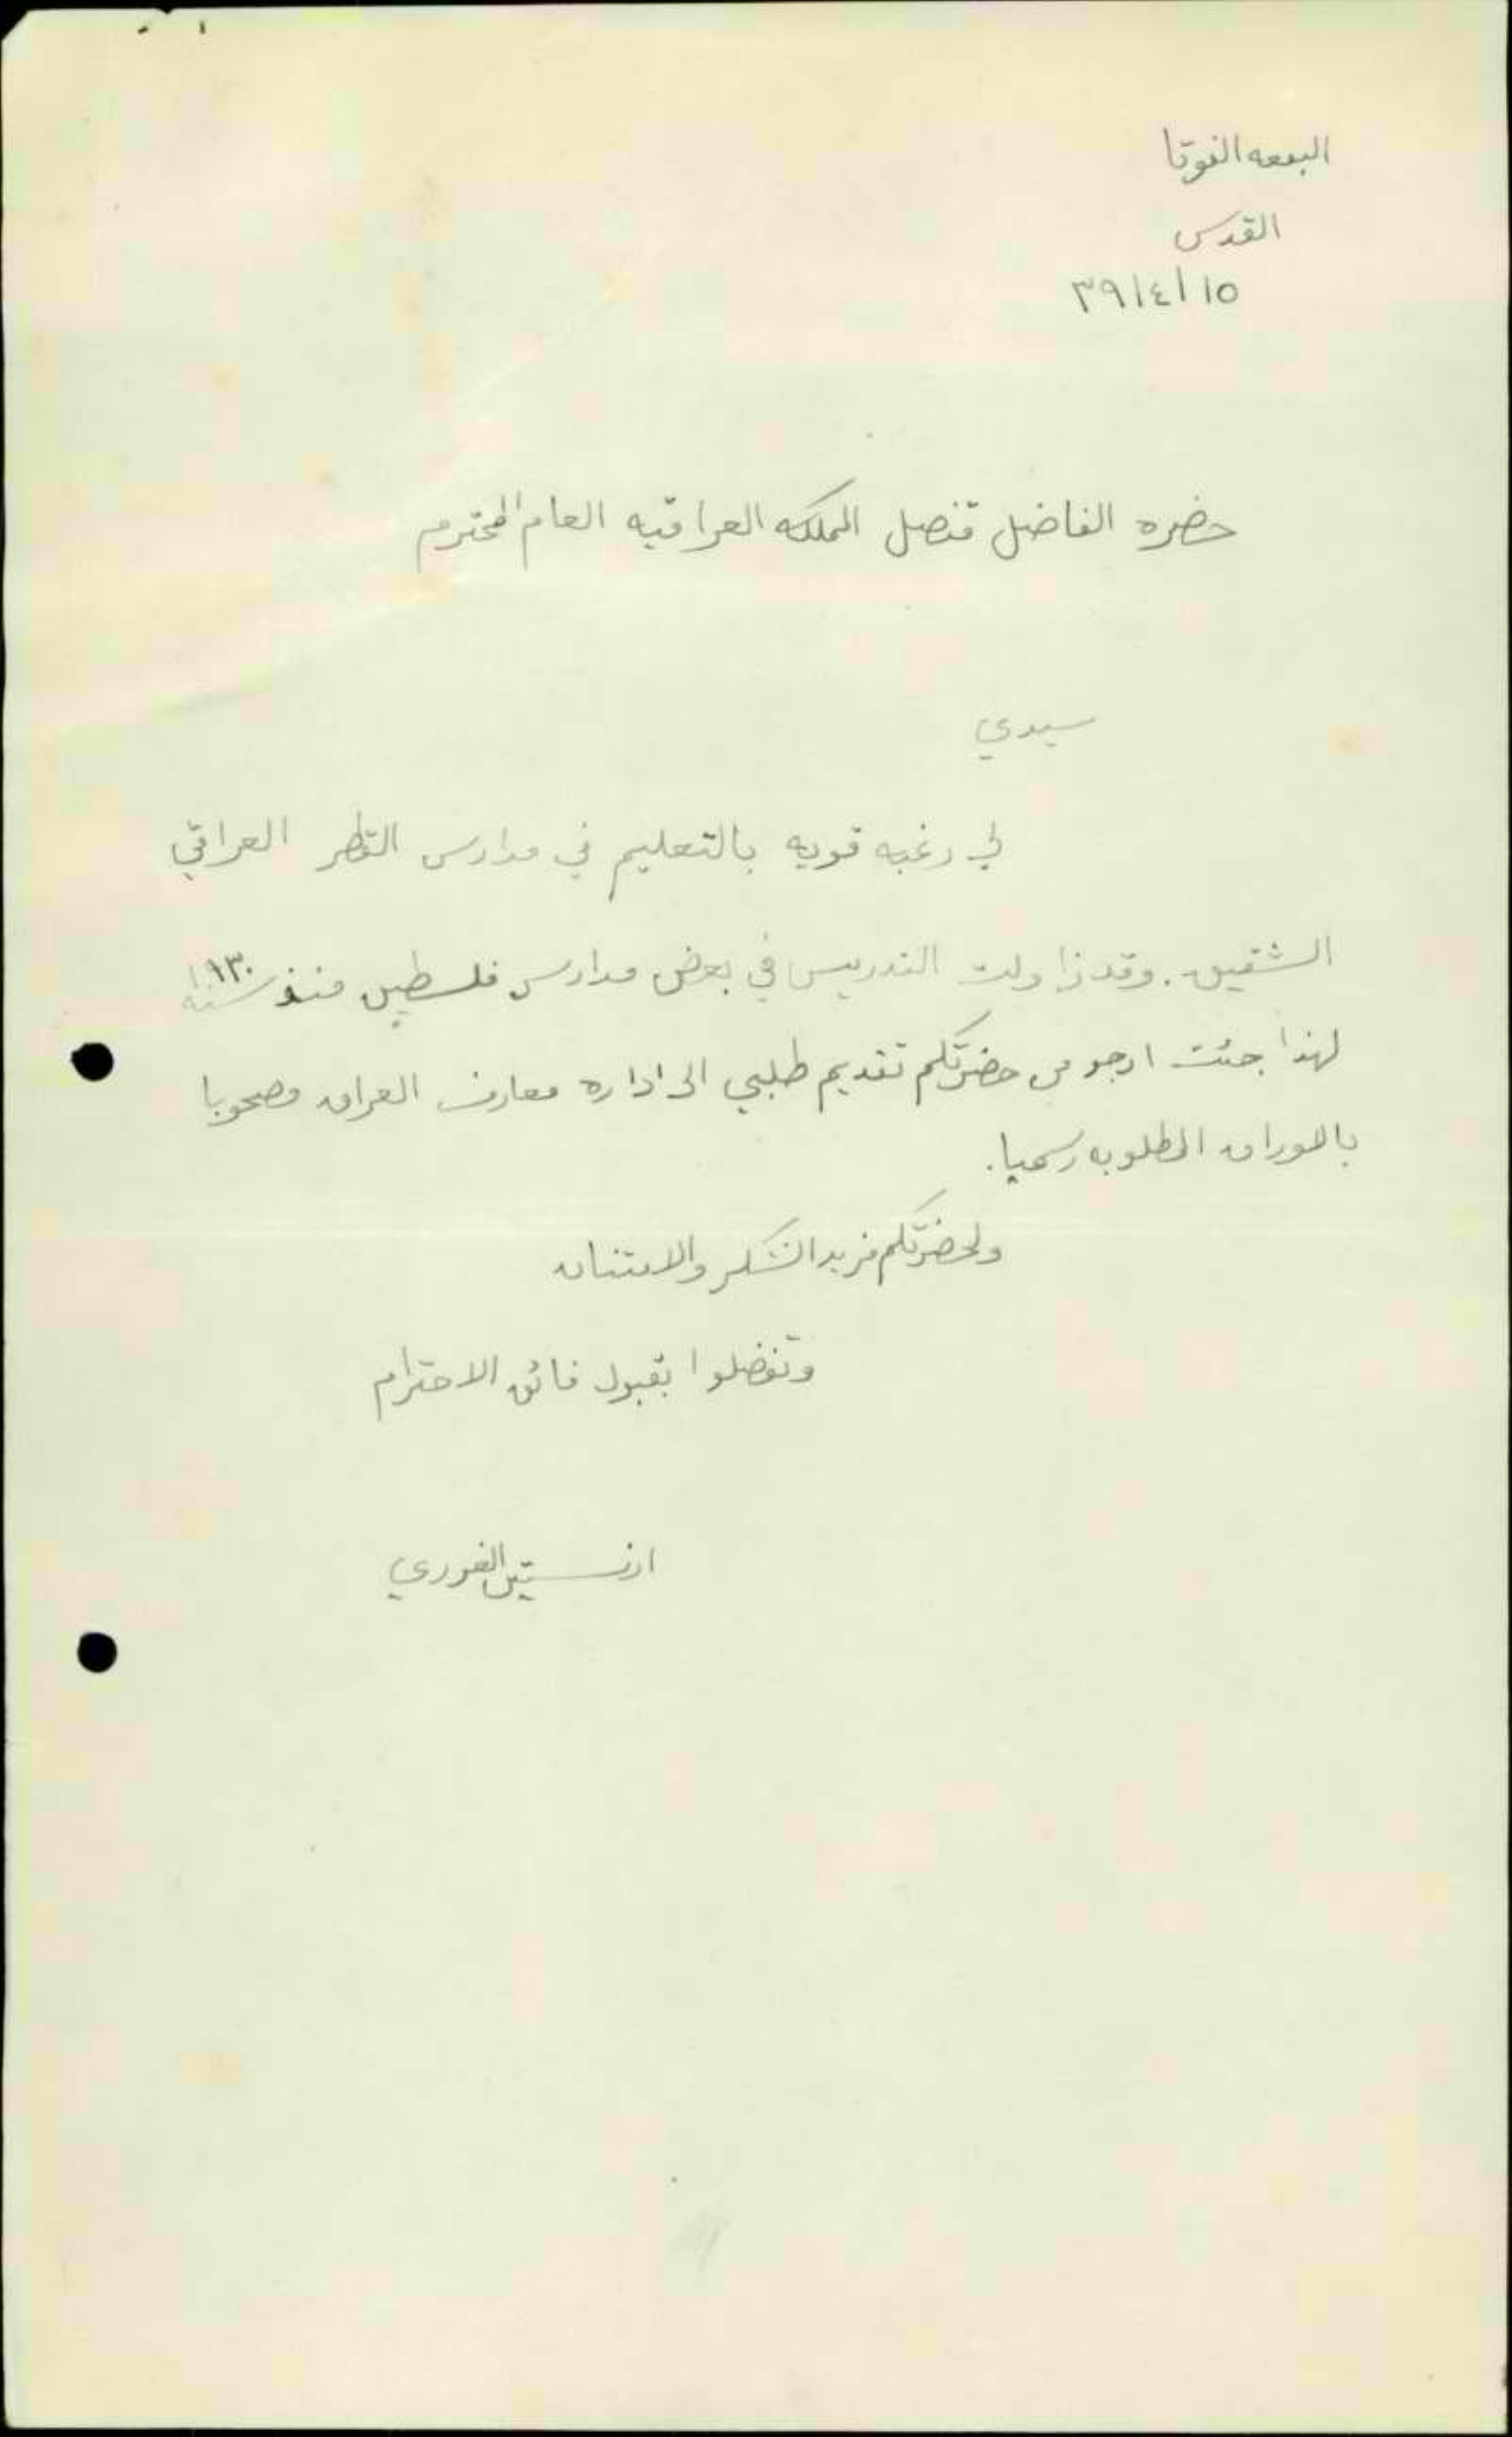 البقعه الفوقا
القدس
١٥/٤/٣٩
حضره الفاضل قنصل المملكه العراقيه العام المحترم
سيدي
لي رغبه قويه بالتعليم في مدارس القطر العراقي
الشقيق. وقد زاولت التدريس في بعض مدارس فلسطين منذ سنه ١٩٣٠
لهذا جئت ارجو من حضرتكم تقديم طلبي الى اداره معارف العراق مصحوبا
بالاوراق المطلوبه رسميا.
ولحضرتكم مزيد الشكر والامتنان
وتفضلوا بقبول فائق الاحترام
ارنستين الغوري